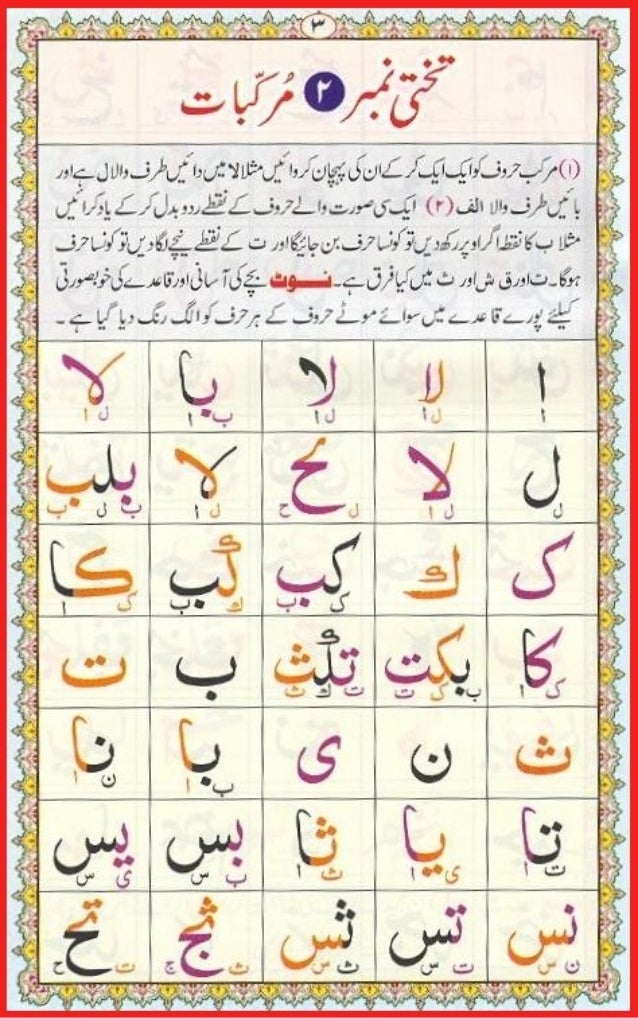 ۳
تختی نمبر ۲ مُرکّبات
(۱) مرکب حروف کو ایک ایک کر کے ان کی پہچان کروائیں مثلا لا میں دائیں طرف والا ل ہے اور
بائیں طرف والا الف (۲) ایک سی صورت والے حروف کے نقطے ردوبدل کر کے یاد کرائیں
مثلا ب کا نقطہ اگر اوپر رکھ دیں تو کونسا حرف بن جائیگا اور ت کے نقطے نیچے لگا دیں تو کونسا حرف
ہوگا۔ ت اور ق ش اور ث میں کیا فرق ہے۔ نوٹ بچے کی آسانی اور قاعدے کی خوبصورتی
کیلئے پورے قاعدے میں سوائے موٹے حروف کے ہر حرف کو الگ رنگ دیا گیا ہے۔
ا لا لا با لا
ا ل ا ل ا ب ا ل ا
ل لا لح لا بلب
ل ل ا ل ح ل ا ب ل ب
ک ك کب كب کا
ک ب ك ب ک ا
کا بکت تكث ب ت
ک ا ب ک ت ت ك ث
ث ن ی با نا
ب ا ن ا
تا یا ثا بس یس
ت ا ی ا ث ا ب س ی س
نس تس ثس ثج تح
ن س ت س ث س ث ج ت ح